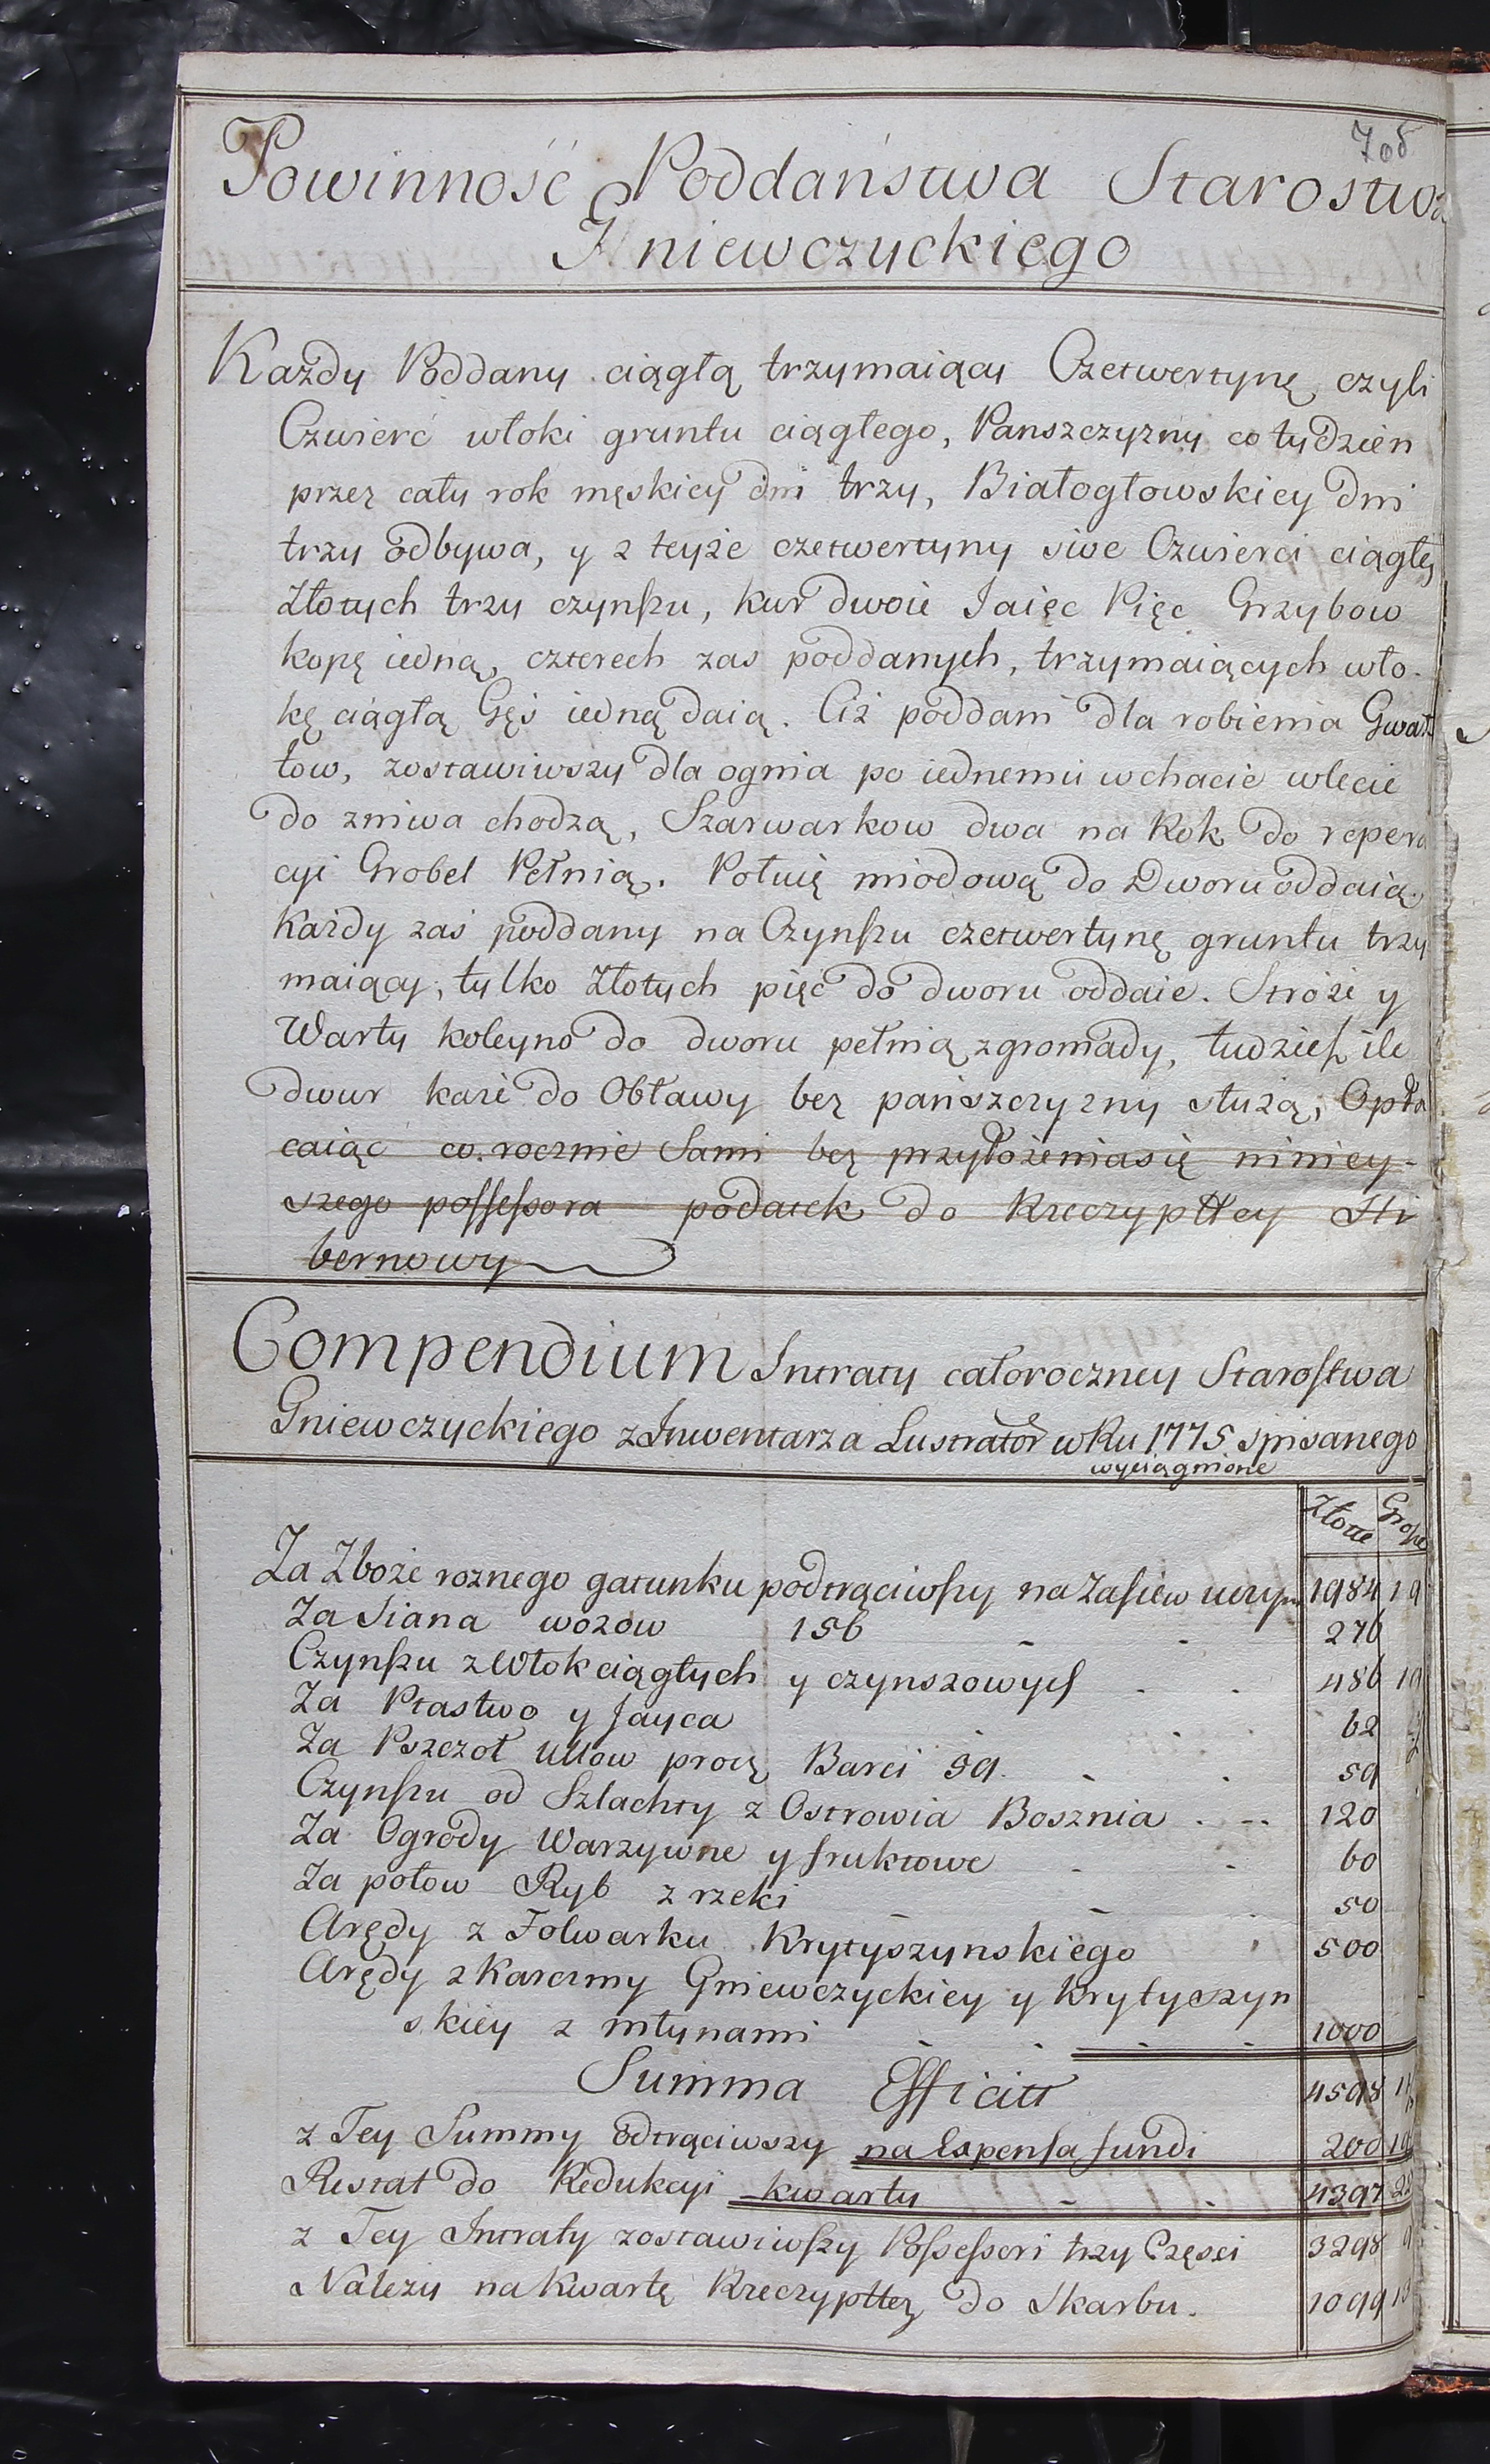 7об
Powinność Poddaństwa Starostwa
Gniewczyckiego
Każdy Poddany ciągłą trzymaiący Czetwertynę czyli
Czwierć włoki gruntu ciągłego, Panszczyzny co tydzień
przez cały rok męskiey dni trzy, Białogłowskiey dni
trzy odbywa, y z teyże czetwertyny sive Czwierci ciągłey
Złotych trzy czynszu, kur dwoie Iaięc Pięc Grzybow
kopę iedną, czterech zas poddanych, trzymaiących wło-
kę ciągłą Gęś iedną daią. Ciż poddani dla robienia Gwał
tow, zostawiwszy dla ognia po iednemu w chacie w lecie
do zniwa chodzą, Szarwarkow dwa na Rok do repera
cyi Grobel Pełnią. Połwię miodową do Dworu oddaią.
Każdy zaś poddany na Czynszu czetwertynę gruntu trzy
maiący, tylko Złotych pięć do dworu oddaie. Stroże y
Warty koleyno do dworu pełnią z gromady, tudzież ile
dwur każe do Obławy bez pańszczyzny służą, Opła
caiąc co rocznie Sami bez przyłożenia się niniey-
szego possessora podatek do Rzeczypltey Hi
bernowy
Compendium Intraty całoroczney Starostwa
Gniewczyckiego z Inwentarza Lustrator w Ru 1775 spisanego
wyciągnione
Złotte Grosze
Za Zboże roznego gatunku podtrąciwszy na Zasiew 1984 19
Za Siana wozow 156 - - 276
Czynszu z Włok ciągłych y czynszowych - - 486 19
Za Ptastwo y Jayca - - 62
Za Pszczoł Ullow procz Barci 59. - - 59
Czynszu od Szlachty z Ostrowia Bosznia - -- 120
Za Ogrody Warzywne y fruktowe - - 60
Za połow Ryb z rzeki - - - 50
Arędy z Folwarku Krytyszynskiego - 500
Arędy z Karczmy Gniewczyckiey y Krytyszyn
skiey z młynami - - - - 1000
Summa Efficitt 4598
z Tey Summy odtrąciwszy na Expensa fundi 200
Restat do Redukcyi kwarty - - 4397
z Tey Intraty zostawiwszy Possessori trzy Części 3298
Należy na Kwartę Rzeczypltey do Skarbu. 1099